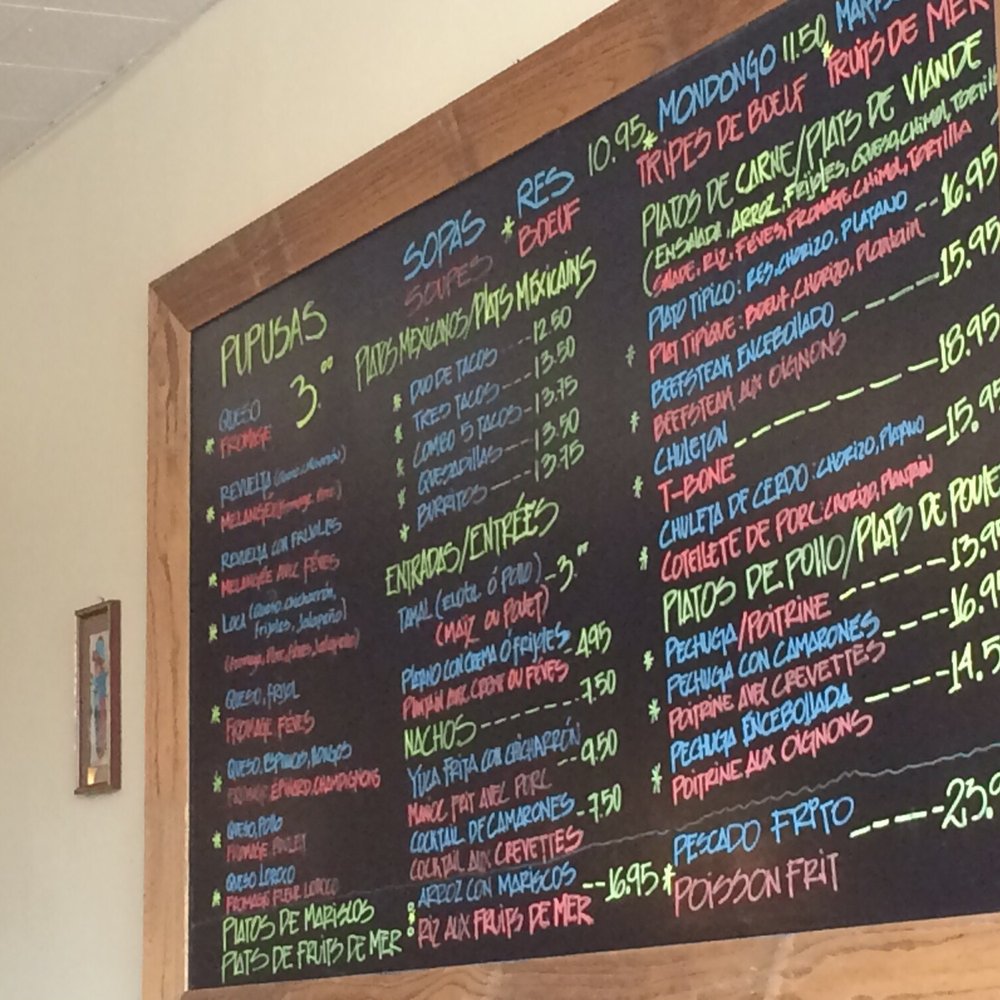 PUPUSAS
3.00
QUESO
* FROMAGE
REVUELTA (Queso, chicharrón)
* MELANGÉE (fromage, porc)
REVUELTA CON FRIJOLES
* MELANGÉE AVEC FÉVES
* LOCA (Queso, chicharrón, frijoles, Jalapeño)
(fromage, Porc, féves, Jalapeño)
QUESO, FRIJOL
* FROMAGE FEVES
QUESO, ESPINACO, HONGOS
* FROMAGE ÉPINARD, CHAMPAGNONS
QUESO, POLLO
* FROMAGE POULET
QUESO LOROCO
* FROMAGE FLEUR LOROCO
PLATOS DE MARISCOS
PLATS DE FRUITS DE MER
SOPAS * RES 10.95
SOUPES BOEUF
* MONDONGO 11.50
TRIPES DE BOEUF
* FRUITS DE MER
PLATOS MEXICANOS/PLATS MEXICAINS
* DUO DE TACOS ---- 12.50
* TRES TACOS --- 13.50
* COMBO 5 TACOS - 13.75
* QUESADILLAS --- 13.50
* BURRITOS --- 13.75
ENTRADAS/ENTRÉES
TAMAL (ELOTE Ó POLLO) - 3.00
(MAÏZ OU POULET)
PLATANO CON CREMA Ó FRIJOLES -- 4.95
PLANTAIN AVEC CREME OU FÉVES
NACHOS -------- 7.50
YUCA FRITA CON CHICHARRÓN --- 9.50
MANIOC FRIT AVEC PORC
COCKTAIL DE CAMARONES - 7.50
COCKTAIL AUX CREVETTES
* ARROZ CON MARISCOS -- 16.95
RIZ AUX FRUITS DE MER
PLATOS DE CARNE/PLATS DE VIANDE
(ENSALADA, ARROZ, FRIJOLES, QUESO, CHIMOL,
SALADE, RIZ, FÉVES, FROMAGE CHIMOL, TORTILLA
PLATO TIPICO: RES, CHORIZO, PLATANO -- 16.95
* PLAT TIPIQUE: BOEUF, CHORIZO, Plantain
BEEFSTEAK ENCEBOLLADO ------ 15.95
* BEEFSTEAK AUX OIGNONS
CHULETON --------- 18.95
* T-BONE
CHULETA DE CERDO: CHORIZO, PLATANO - 15.95
* COTELETE DE PORC: CHORIZO, PLANTAIN
PLATOS DE POLLO/PLATS DE
* PECHUGA/POITRINE ------
PECHUGA CON CAMARONES ----
* POITRINE AVEC CREVETTES
PECHUGA ENCEBOLLADA -----
* POITRINE AUX OIGNONS
* PESCADO FRITO -----
POISSON FRIT